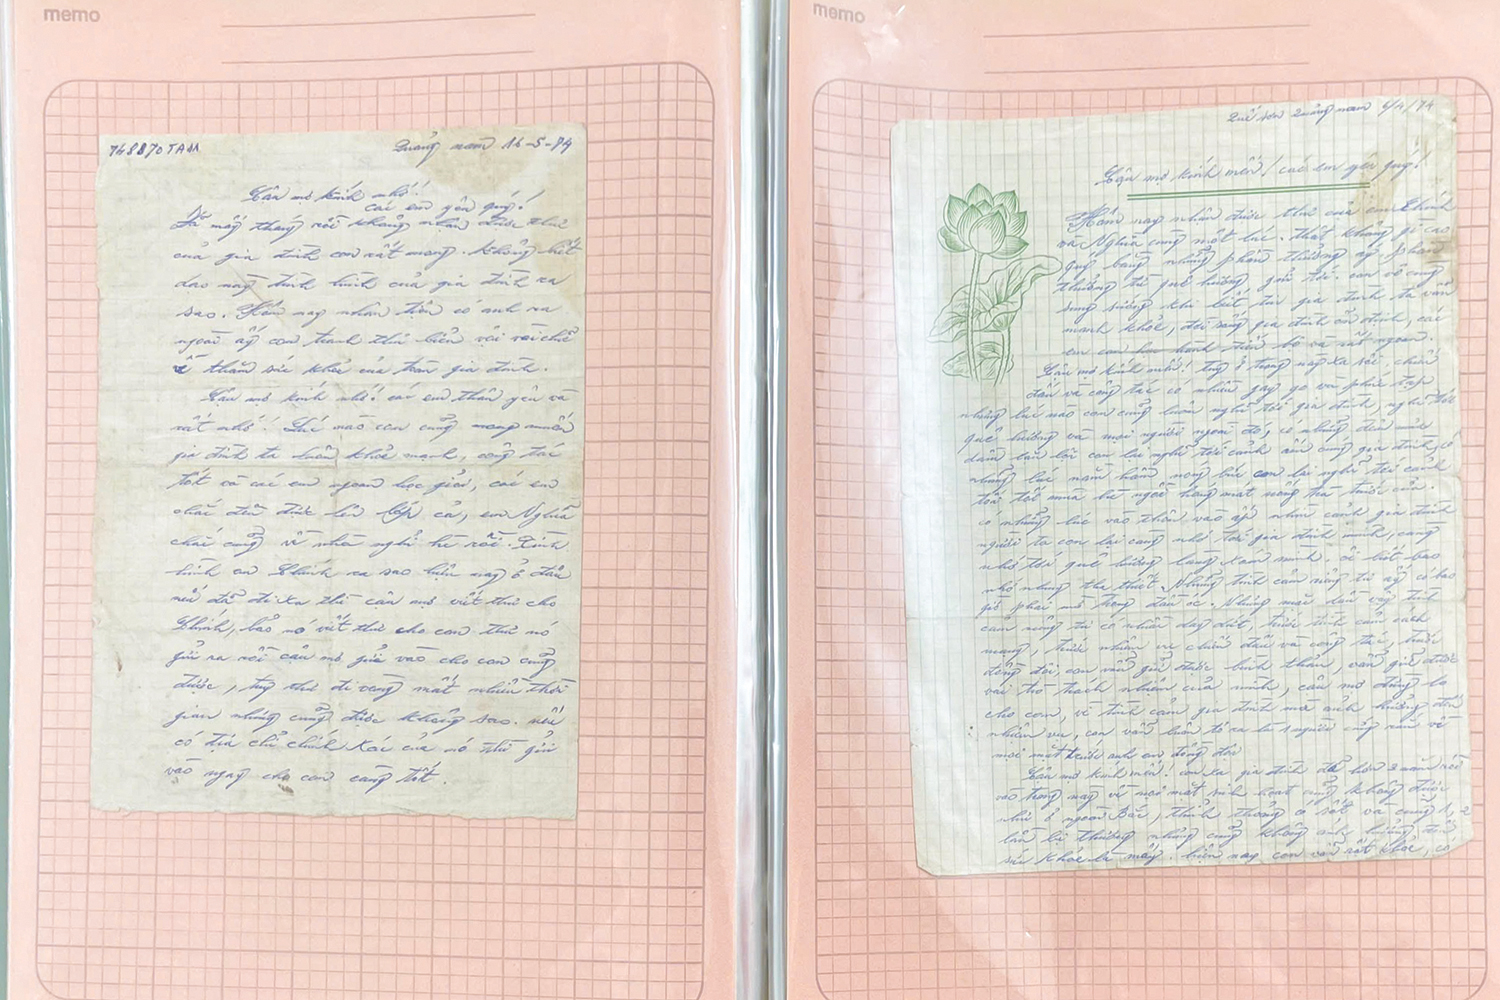 memo
748870TAM
Quảng nam 16-5-74
Cậu mợ kính nhớ!
các em yêu quý!
Đã mấy tháng rồi không nhận được thư
của gia đình con rất mong. không biết
dạo này tình hình của gia đình ra
sao. Hôm nay nhân tiện có anh ra
ngoài ấy con tranh thủ biên vài
thăm sức khỏe của toàn gia đình.
Cậu mợ kính nhớ! các em thân yêu và
rất nhớ! Lúc nào con cũng mong muốn
gia đình ta luôn khỏe mạnh, công tác
tốt và các em ngoan học giỏi, các em
chắc đều được lên lớp cả, em Nghĩa
chắc cũng về nhà nghỉ hè rồi. Tình
hình em Khánh ra sao hiện nay ở đâu
nếu đã đi xa thì cậu mợ viết thư cho
Khánh, bảo nó viết thư cho con thư nó
gửi ra rồi cậu mợ gửi vào cho con cũng
được, tuy thư đi vòng mất nhiều thời
gian nhưng cũng được không sao. nếu
có địa chỉ chính xác của nó thì gửi
vào ngay cho con càng tốt.
memo
Quế sơn Quảng nam
Cậu mợ kính mến! các em yêu quý!
Hôm nay nhận được thư của em Khánh
và Nghĩa cùng một lúc. thật không gì cao
quý bằng những phần thưởng ấy, phần
thưởng từ quê hương gửi tới. con vô cùng
sung sướng khi biết tin gia đình ta vẫn
mạnh khỏe, đời sống gia đình ổn định, các
em con học hành tiến bộ và rất ngoan.
Cậu mợ kính nhớ! tuy ở trong này xa xôi, chiến
đấu và công tác có nhiều gay go và phức tạp
những lúc nào con cũng luôn nghĩ tới gia đình, nghĩ tới
quê hương và mọi người ngoài đó, có những đêm mưa
dầm con lại nghĩ tới cảnh ấm cúng gia đình,
những lúc nằm hầm nóng bức, con lại nghĩ tới cảnh
tối tối mùa hè ngồi hóng mát trước cửa.
có những lúc vào thôn vào ấp nhìn cảnh gia đình
người ta con lại càng nhớ tới gia đình mình, càng
nhớ tới quê hương làng xóm mình. ôi biết bao
nhớ nhung tha thiết. Những tình cảm riêng tư ấy có bao
giờ phai mờ trong đầu óc. Nhưng mặc dầu vậy tình
cảm riêng tư có nhiều day dứt, trước tình cảm cách
mạng, trước nhiệm vụ chiến đấu và công tác, trước
đồng đội, con vẫn giữ được bình thản, vẫn giữ được
vai trò trách nhiệm của mình, cậu mợ đừng lo
cho con, vì tình cảm gia đình mà ảnh hưởng đến
nhiệm vụ, con vẫn luôn tỏ ra là 1 người cứng rắn về
mọi mặt trước anh em đồng đội
Cậu mợ kính mến! con xa gia đình đã hơn 2 năm rồi
vào trong này về mọi mặt sinh hoạt cũng không được
như ở ngoài Bắc, thỉnh thoảng có sốt và cũng 1, 2
lần bị thương nhưng cũng không ảnh hưởng đến
sức khỏe là mấy. hiện nay con vẫn rất khỏe, có